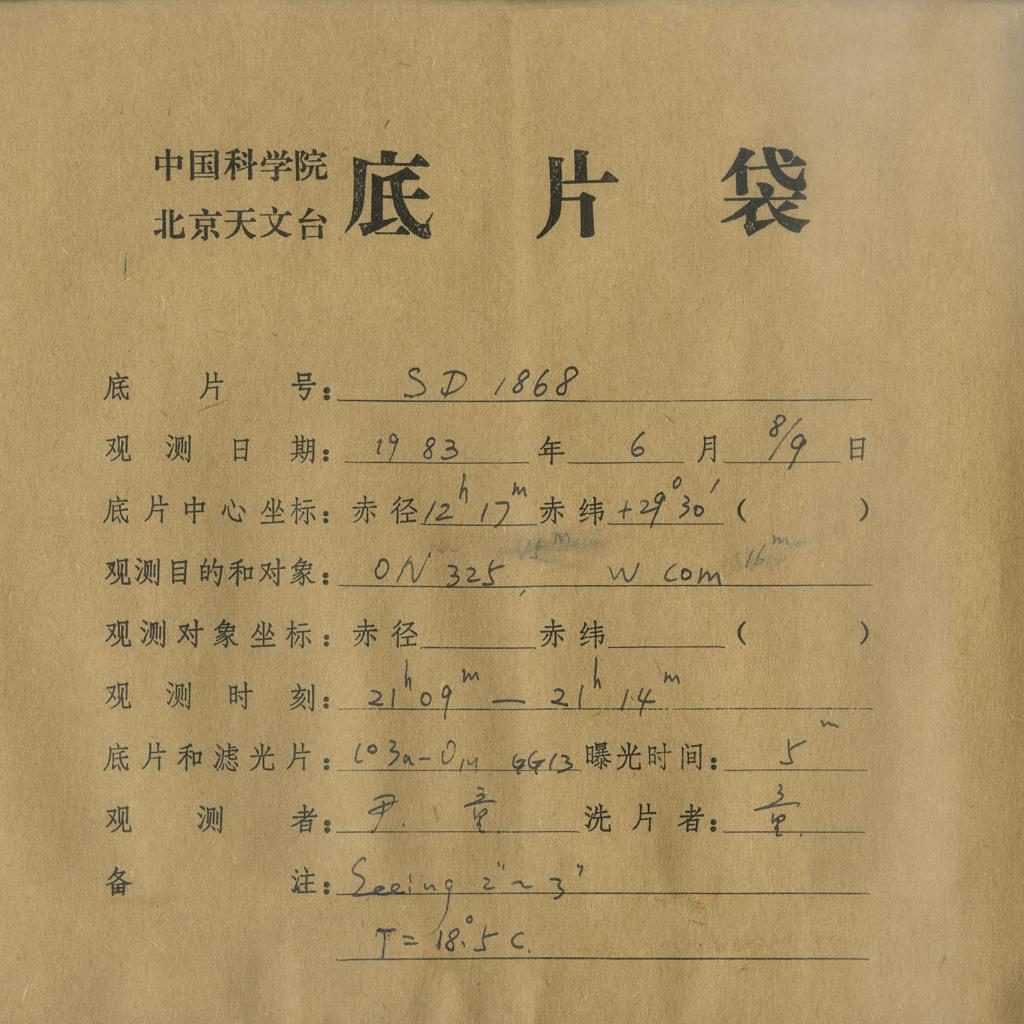 中国科学院
北京天文台 底片袋
底片号: SD 1868
观测日期: 1983 年 6 月 8/9 日
底片中心坐标: 赤径 12h 17m 赤纬 +29°30′ ( )
15m 16m
观测目的和对象: ON 325, W Com
观测对象坐标: 赤径 赤纬 ( )
观测时刻: 21h 09m — 21h 14m
底片和滤光片: 103a-O GG13 曝光时间: 5m
观测者: 尹. 童 洗片者: 童
备注: Seeing 2″~3″
T = 18°.5 C.